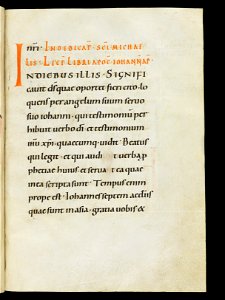 IN DEDICAT SCI MICHAE
LIS LECT LIBRI APOC IOHANNIS AP
INDIEBUS ILLIS. SIGNIFI
cavit ds quae oportet fieri cito. lo
quens per angelum suum servo
suo iohanni. qui testimonium per
hibuit verbo di et testimonium
ihu xpi. quaecumq; vidit. Beatus
qui legit et qui audit verba p
phetiae huius et servat ea quae
in ea scripta sunt. Tempus enim
prope est. Iohannes septem aecclis
quae sunt in asia. gratia vobis &